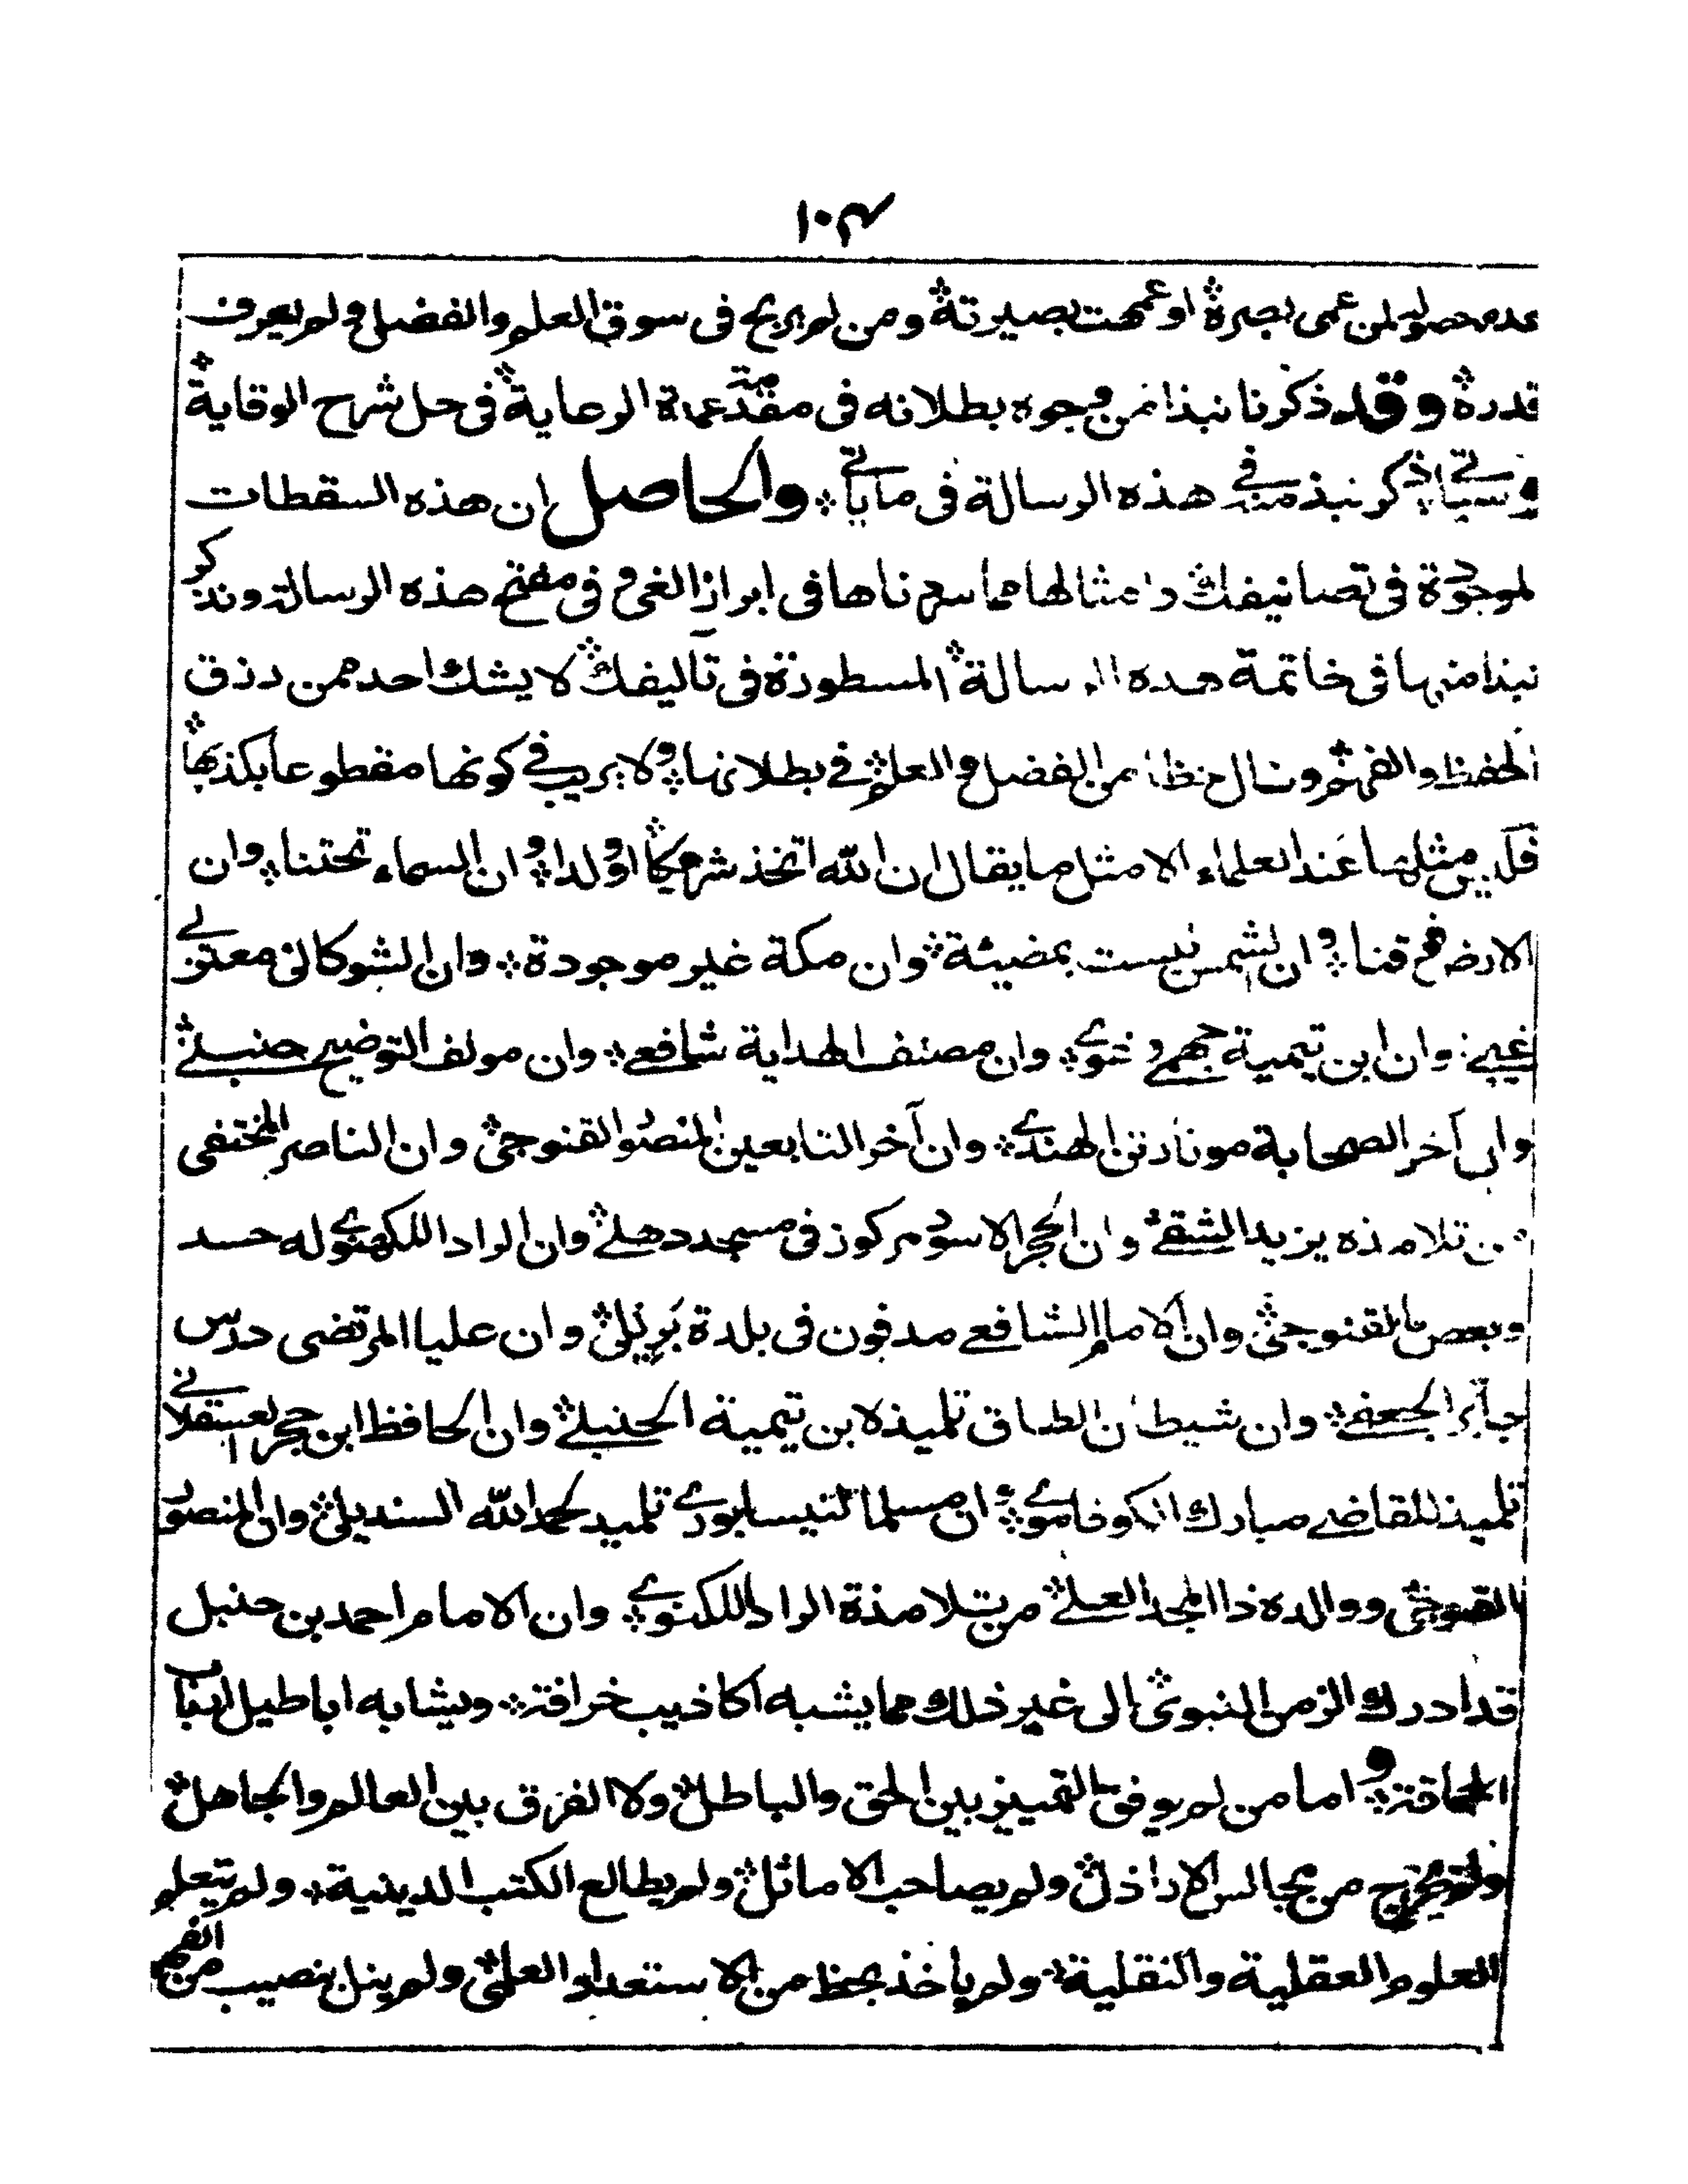 ١٠٤
عدم حصوله لمن عمى بصره او عمهت بصيرته ومن لم يربح فى سوق العلم والفضل ولم يعرف
قدره وقد ذكرنا نبذا من وجوه بطلانه فى مقدمة عمدة الرعاية فى حل شرح الوقاية
وسياتى ذكر نبذ منه فى هذه الرسالة فى ما ياتى والحاصل ان هذه السقطات
الموجودة فى تصانيفك وامثالها مما سردناها فى ابراز الغى و فى مفتح هذه الرسالة ونذكر
نبذا منها فى خاتمة هذه الرسالة المسطورة فى تآليفك لا يشك احد ممن رزق
الحفظ والفهم ونال حظا من الفضل والعلم فے بطلانها ولا يريب فے كونها مقطوعا بكذبها
فليس مثلها عند العلماء الا مثل ما يقال ان الله اتخذ شريكا او ولدا وان السماء تحتنا وان
الارض فوقنا وان الشمس ليست بمضيئة وان مكة غير موجودة وان الشوكانى معتزلے
وان ابن تيمية جهمے وان مصنف الهداية شافعے وان مولف التوضيح حنبلے
وان آخر الصحابة مونا رتن الهندے وان آخر التابعين المنصور القنوجى وان الناصر المختفى
من تلامذه يزيد الشقے وان الحجر الاسود مركوز فى مسجد دهلے وان الراد اللكهنوے له حسد
وبعض بالقنوجى وان الامام الشافعے مدفون فى بلدة بريلى وان عليا المرتضى درس
جابر الجعفے وان شيطان الطاق تلميذه ابن تيمية الحنبلے وان الحافظ ابن حجر العسقلانے
تلميذ للقاضے مبارك الكوفاموے وان مسلما النيسابورے تلميذ لحمد الله السنديلى وان المنصور
القنوجى ووالده ذا المجد العلے من تلامذة الراد اللكنوے وان الامام احمد بن حنبل
قد ادرك الزمن النبوى الى غير ذلك مما يشبه اكاذيب خرافة ويشابه اباطيل ارباب
الحماقة واما من لم يوفق بالتمييز بين الحق والباطل ولا الفرق بين العالم والجاهل
ولم يخرج من مجالس الاراذل ولم يصاحب الاماثل ولم يطالع الكتب الدينية ولم يتعلم
العلوم العقلية والنقلية ولم ياخذ بحظ من الاستعداد العلمى ولم ينل بنصيب من الفهم